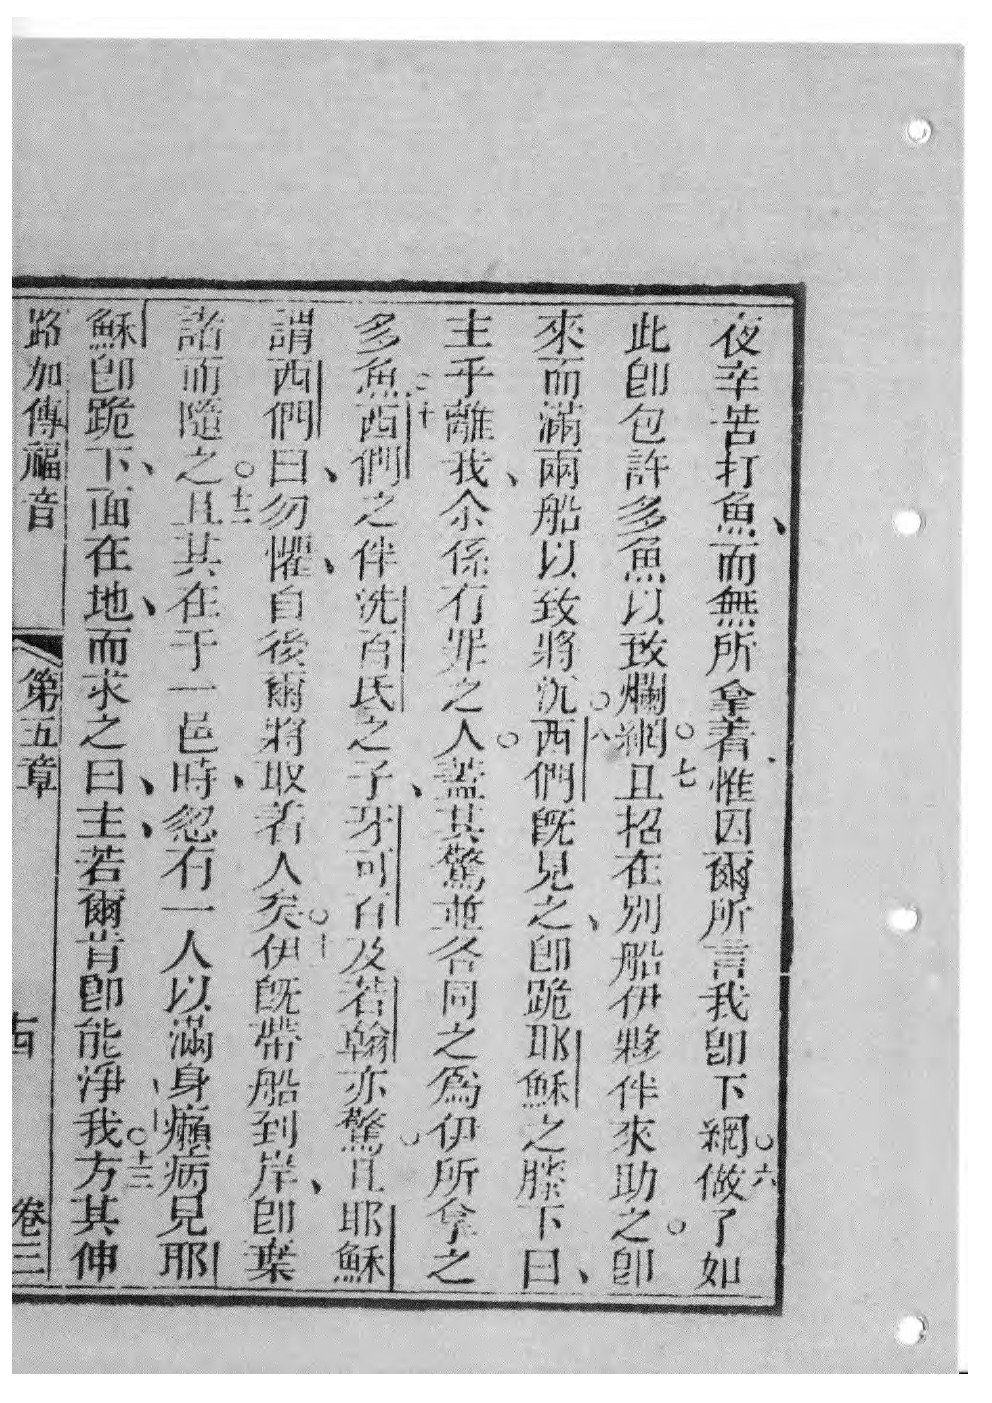 夜辛苦打魚、而無所拿着惟因爾所言我卽下網○六做了如
此卽包許多魚以致爛網○七且招在別船伊夥伴來助之○卽
來而滿兩船以致將沉○八西們旣見之、卽跪耶穌之膝下曰、
主乎離我、余係有罪之人○蓋其驚並各同之爲伊所拿之
多魚○十西們之伴洗百氏之子、牙可百及若翰亦驚○且耶穌
謂西們曰、勿懼、自後爾將取着人矣○十一伊旣帶船到岸、卽棄
諸而隨之○十二且其在于一邑時、忽有一人以滿身癩病見耶
穌卽跪下、面在地、而求之曰、主、若爾肯卽能淨我○十三方其伸
路加傳福音 第五章 卷三